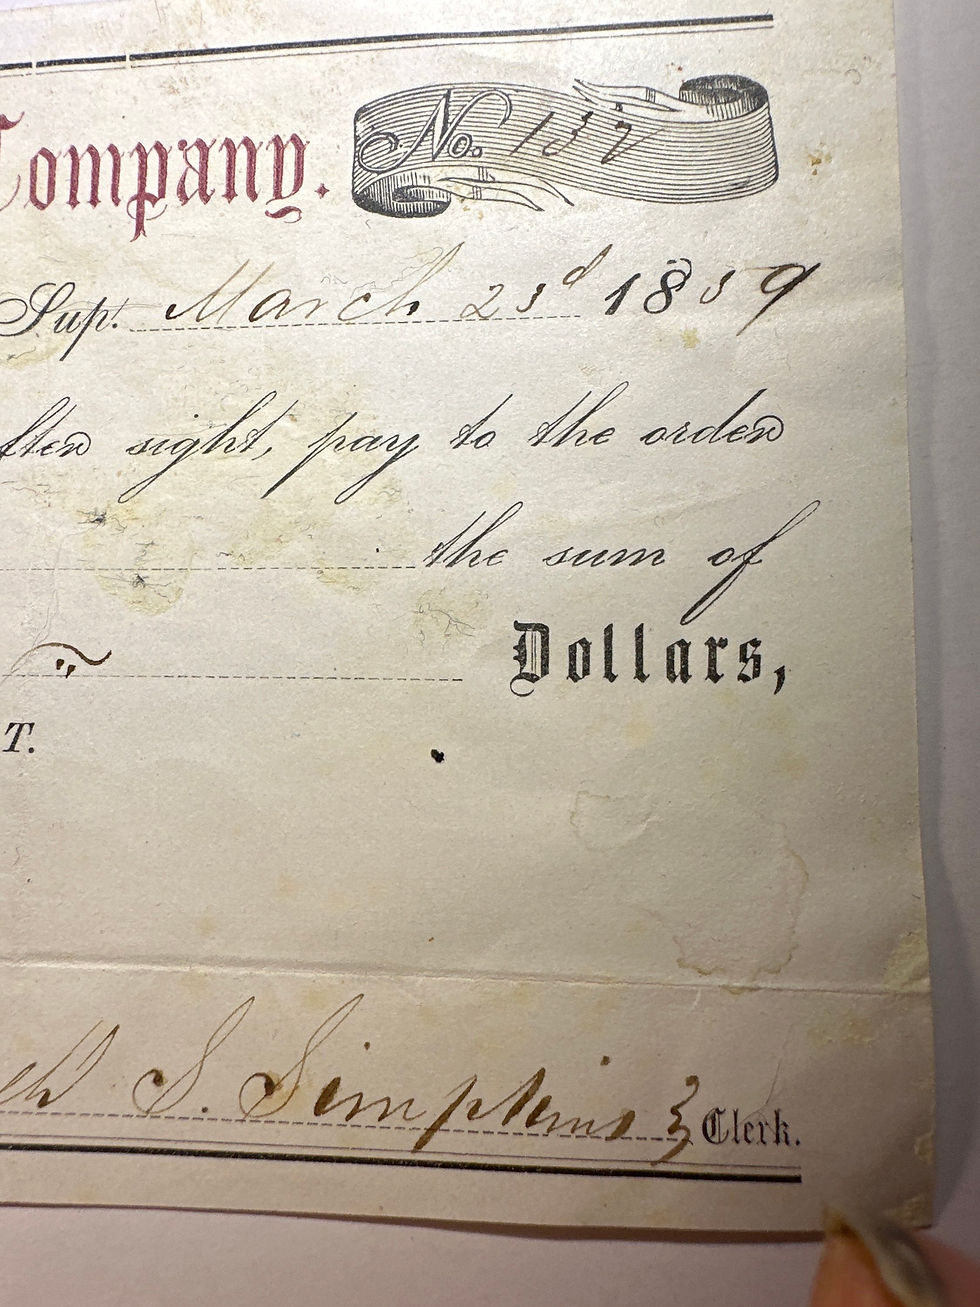 Company.
No. 137
Sup. March 23d 1859
after sight, pay to the order
the sum of
Dollars,
T.
S. Simpkins Clerk.